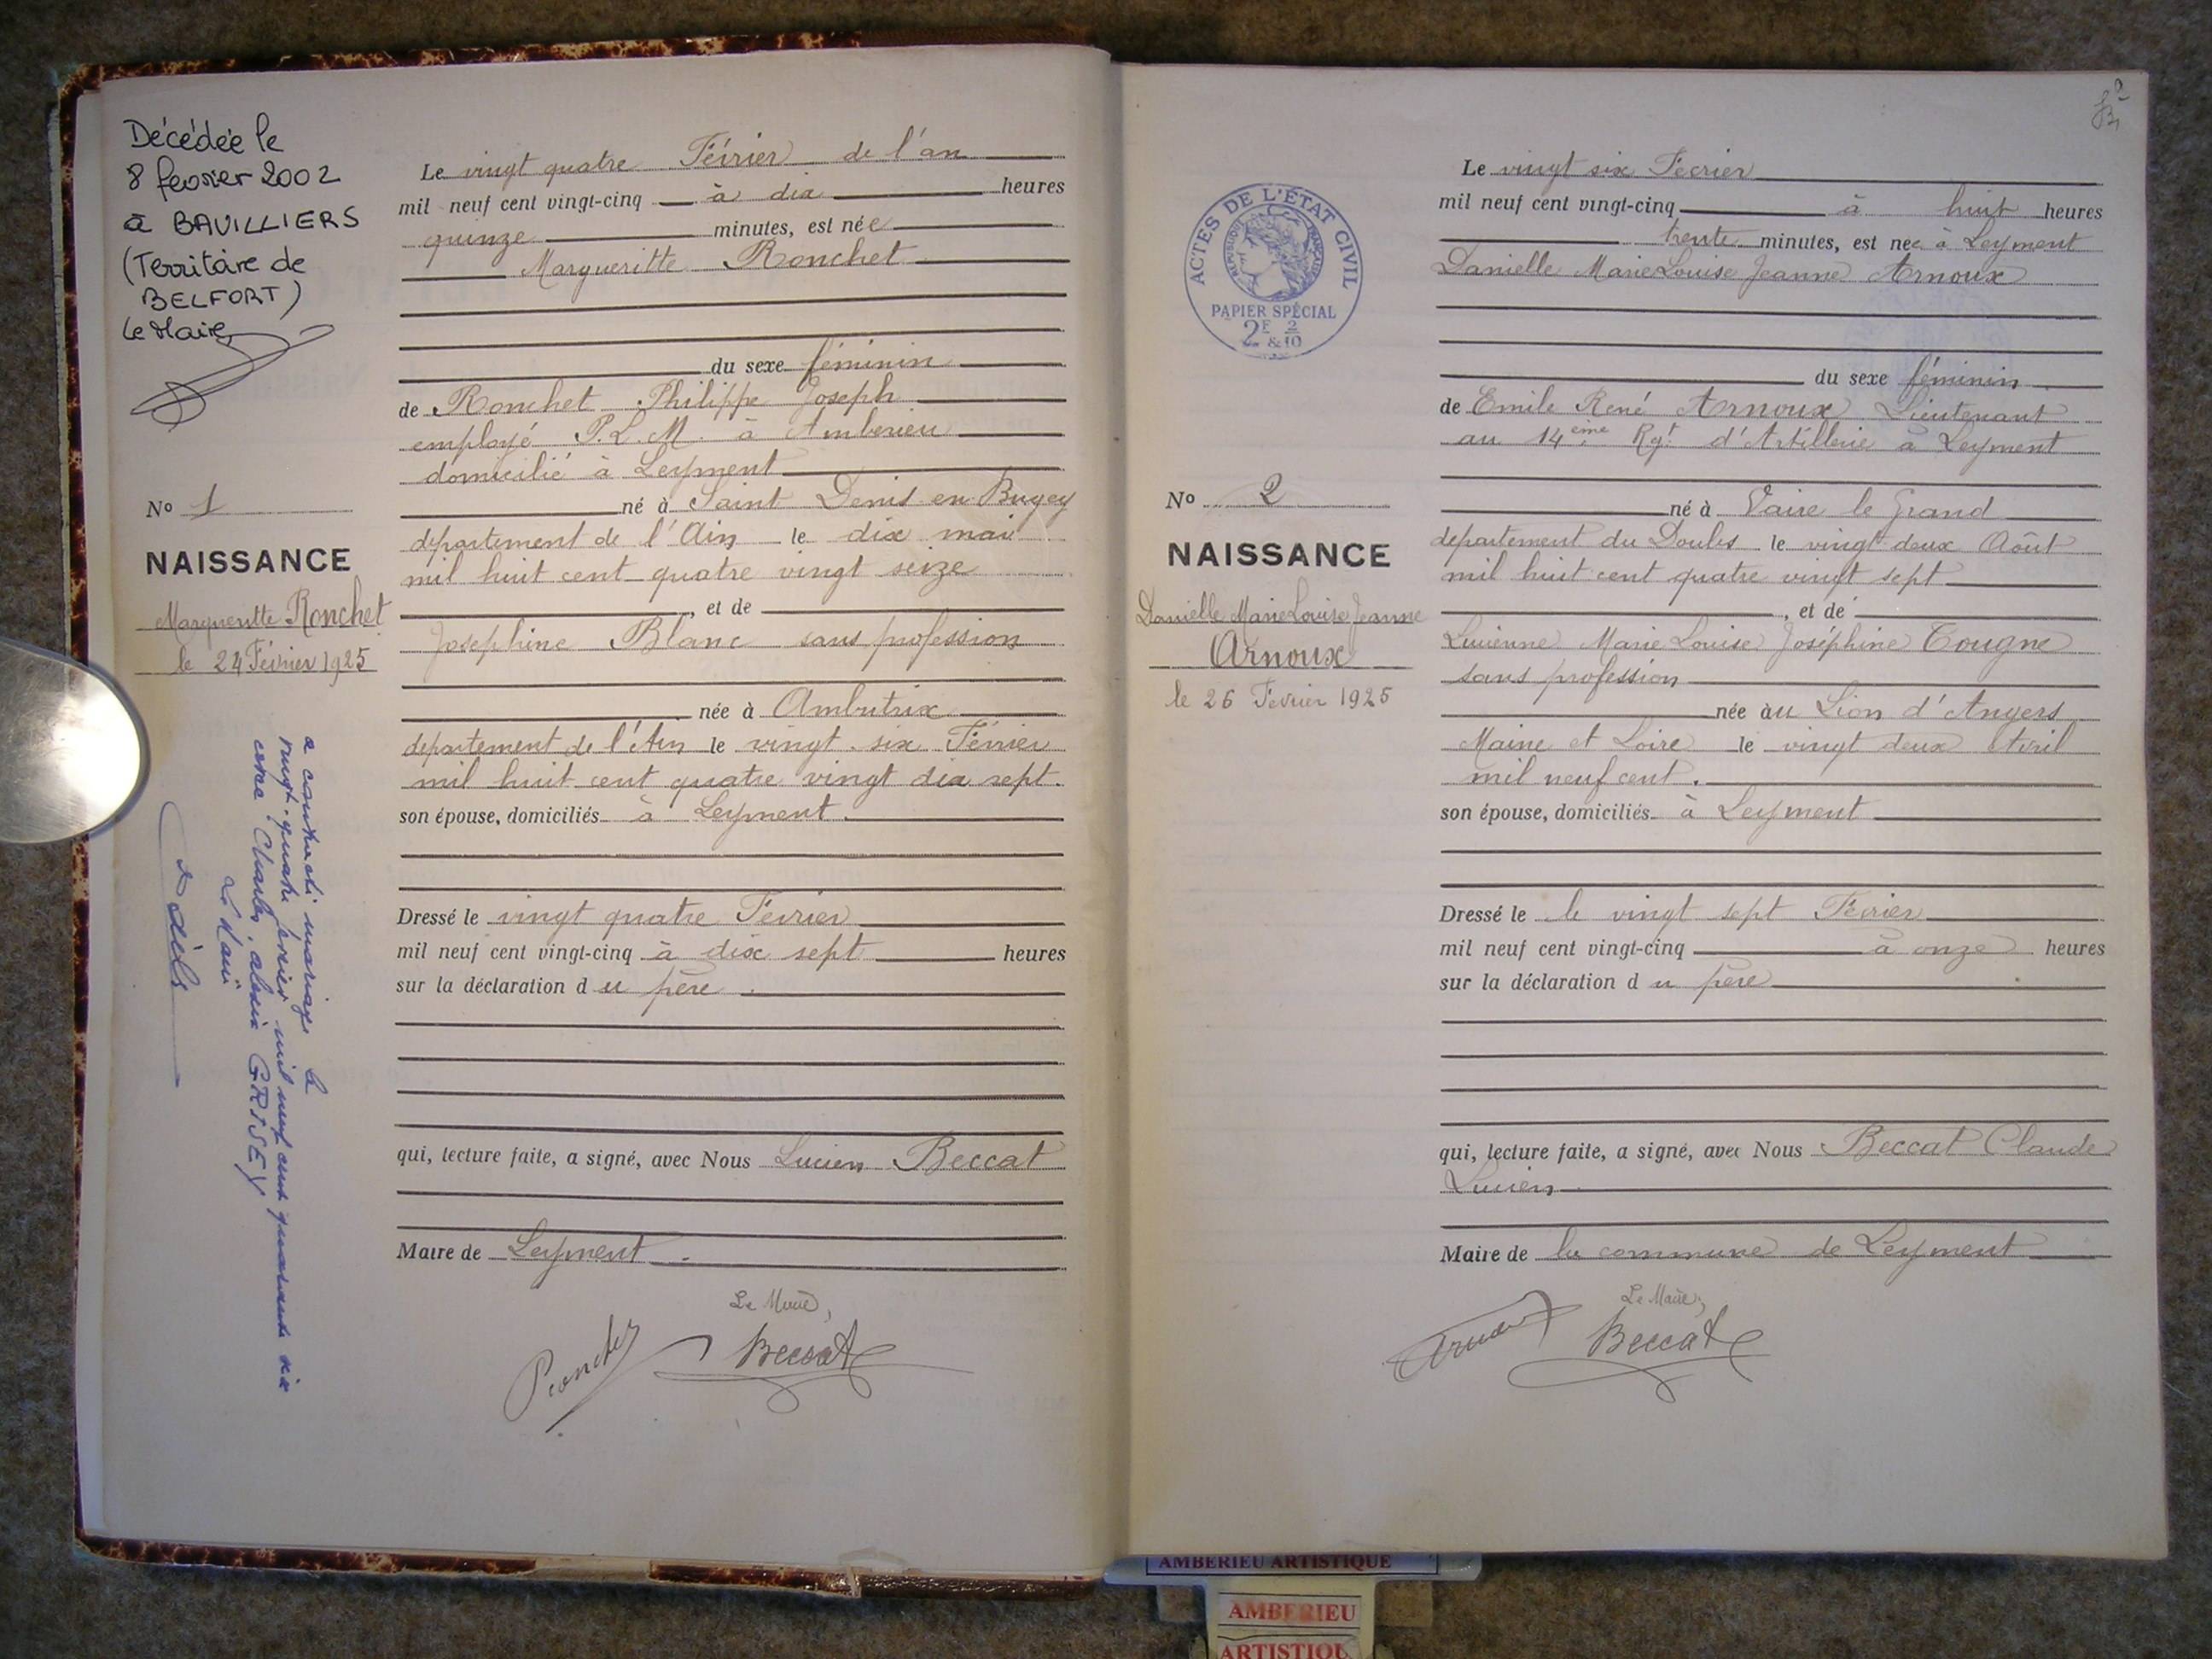 Décédée le
8 fevrier 2002
à BAVILLIERS
(Territoire de
BELFORT)
Le Maire
No 1
NAISSANCE
Margueritte Ronchet
le 24 Février 1925
a contracté mariage le
vingt-quatre février mil neuf cent quarante six
avec Charles, alexis GRISEY
Le Maire
Le vingt quatre Février de l'an
mil neuf cent vingt-cinq à dix heures
quinze minutes, est née
Margueritte Ronchet
du sexe féminin
de Ronchet Philippe Joseph
employé P.L.M. à Amberieu
domicilié à Leyment
né à Saint Denis en Bugey
département de l'Ain le dix mai
mil huit cent quatre vingt seize
, et de
Josephine Blanc sans profession
née à Ambutrix
département de l'Ain le vingt six Février
mil huit cent quatre vingt dix sept.
son épouse, domiciliés à Leyment.
Dressé le vingt quatre Février
mil neuf cent vingt-cinq à dix sept heures
sur la déclaration du père.
qui, lecture faite, a signé, avec Nous Lucien Beccat
Maire de Leyment.
Le Maire,
Ronchet Beccat
ACTES DE L'ÉTAT CIVIL
RÉPUBLIQUE FRANÇAISE
PAPIER SPÉCIAL
2F & 2/10
No 2
NAISSANCE
Danielle Marie Louise Jeanne
Arnoux
le 26 Fevrier 1925
Le vingt six Fevrier
mil neuf cent vingt-cinq à huit heures
trente minutes, est nee à Leyment
Danielle Marie Louise Jeanne Arnoux
du sexe féminin.
de Emile René Arnoux Lieutenant
au 14ème Rgt d'Artillerie à Leyment
né à Vaire le Grand
département du Doubs le vingt deux Août
mil huit cent quatre vingt sept
, et de
Lucienne Marie Louise Joséphine Tougne
sans profession
née au Lion d'Angers
Maine et Loire le vingt deux Avril
mil neuf cent.
son épouse, domiciliés à Leyment
Dressé le le vingt sept Fevrier
mil neuf cent vingt-cinq à onze heures
sur la déclaration du père
qui, lecture faite, a signé, avec Nous Beccat Claude
Lucien
Maire de la commune de Leyment
Le Maire,
Arnoux Beccat
AMBERIEU ARTISTIQUE
AMBERIEU
ARTISTIQU